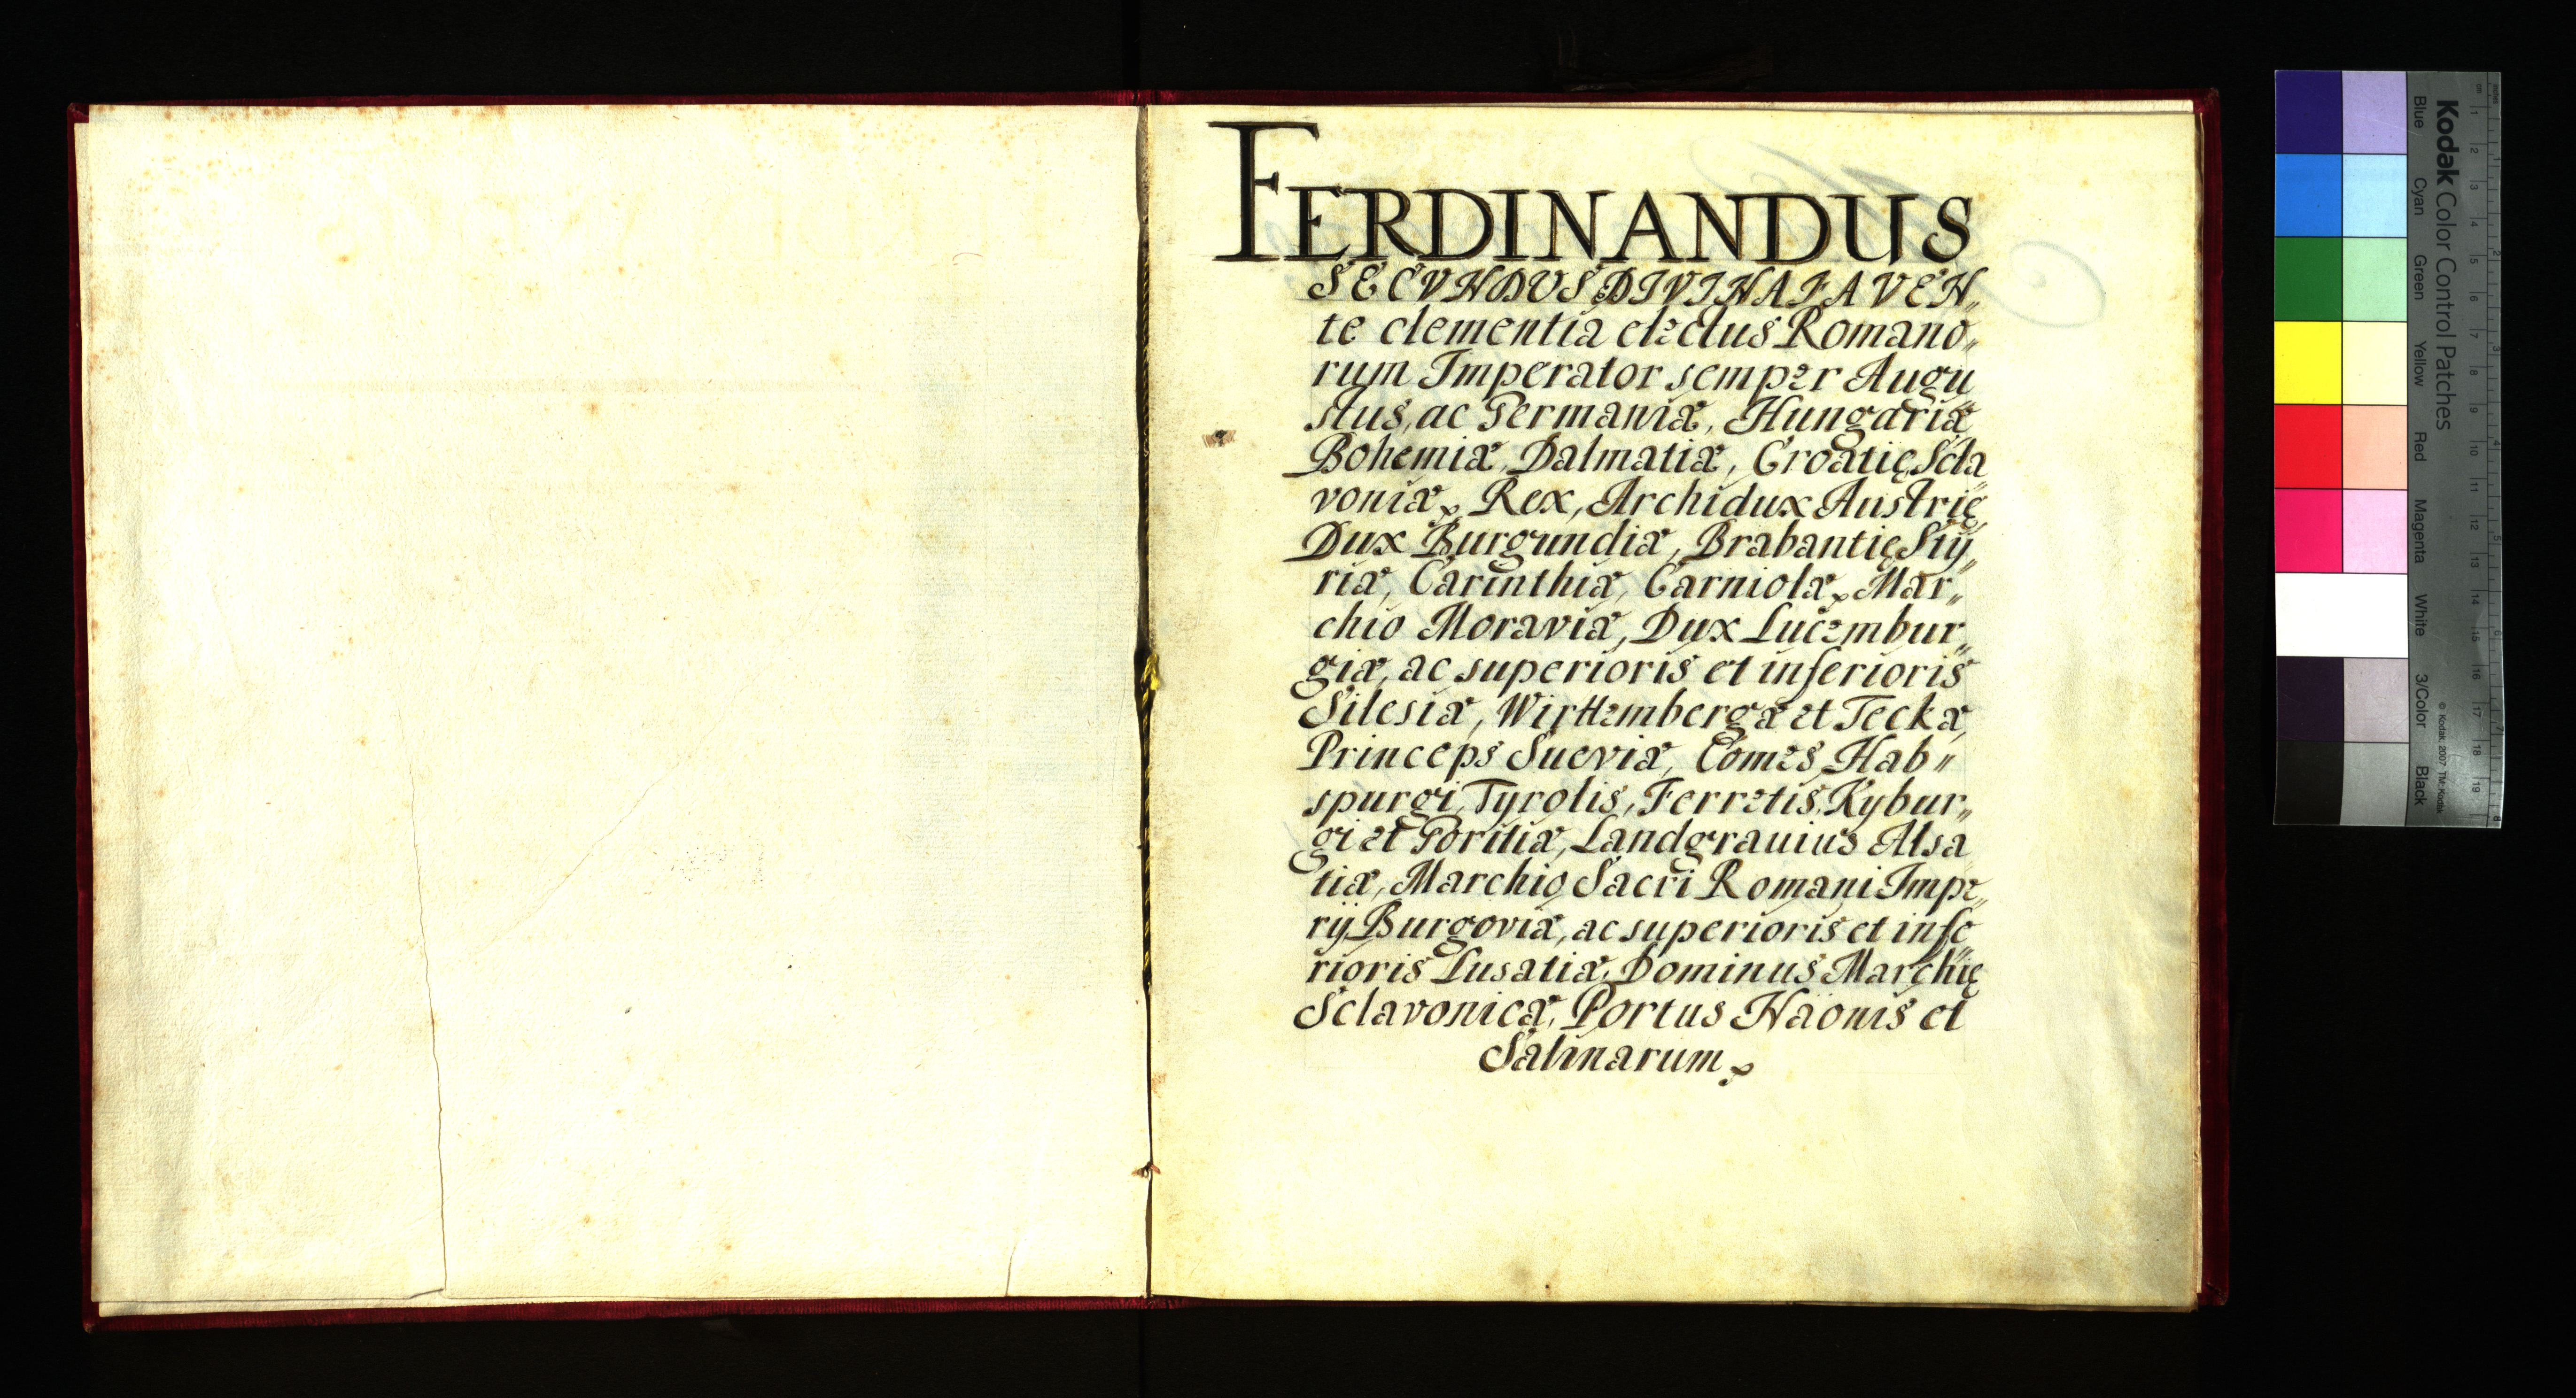 FERDINANDUS
SECVNDVS DIVINA FAVEN„
te clementia electus Romano„
rum Imperator semper Augu„
stus, ac Germaniæ, Hungariæ
Bohemiæ, Dalmatiæ, Croatię, Scla„
voniæ, Rex, Archidux Austrię,
Dux Burgundiæ, Brabantię, Sty„
riæ, Carinthiæ, Carniolæ, Mar„
chio Moraviæ, Dux Lucembur„
giæ, ac superioris et inferioris
Silesiæ, Wirttembergæ et Teckæ,
Princeps Sueviæ, Comes Hab„
spurgi, Tyrolis, Ferretis, Kybur„
gi et Goritiæ, Landgrauius Alsa„
tiæ, Marchio Sacri Romani Impe„
rij Burgoviæ, ac superioris et infe„
rioris Lusatiæ, Dominus Marchię
Sclavonicæ, Portus Naonis et
Salinarum
Kodak Color Control Patches
Blue Cyan Green Yellow Red Magenta White 3/Color Black
© Kodak, 2007 TM: Kodak
cm 1 2 3 4 5 6 7 8 9 10 11 12 13 14 15 16 17 18 19
inches 1 2 3 4 5 6 7 8